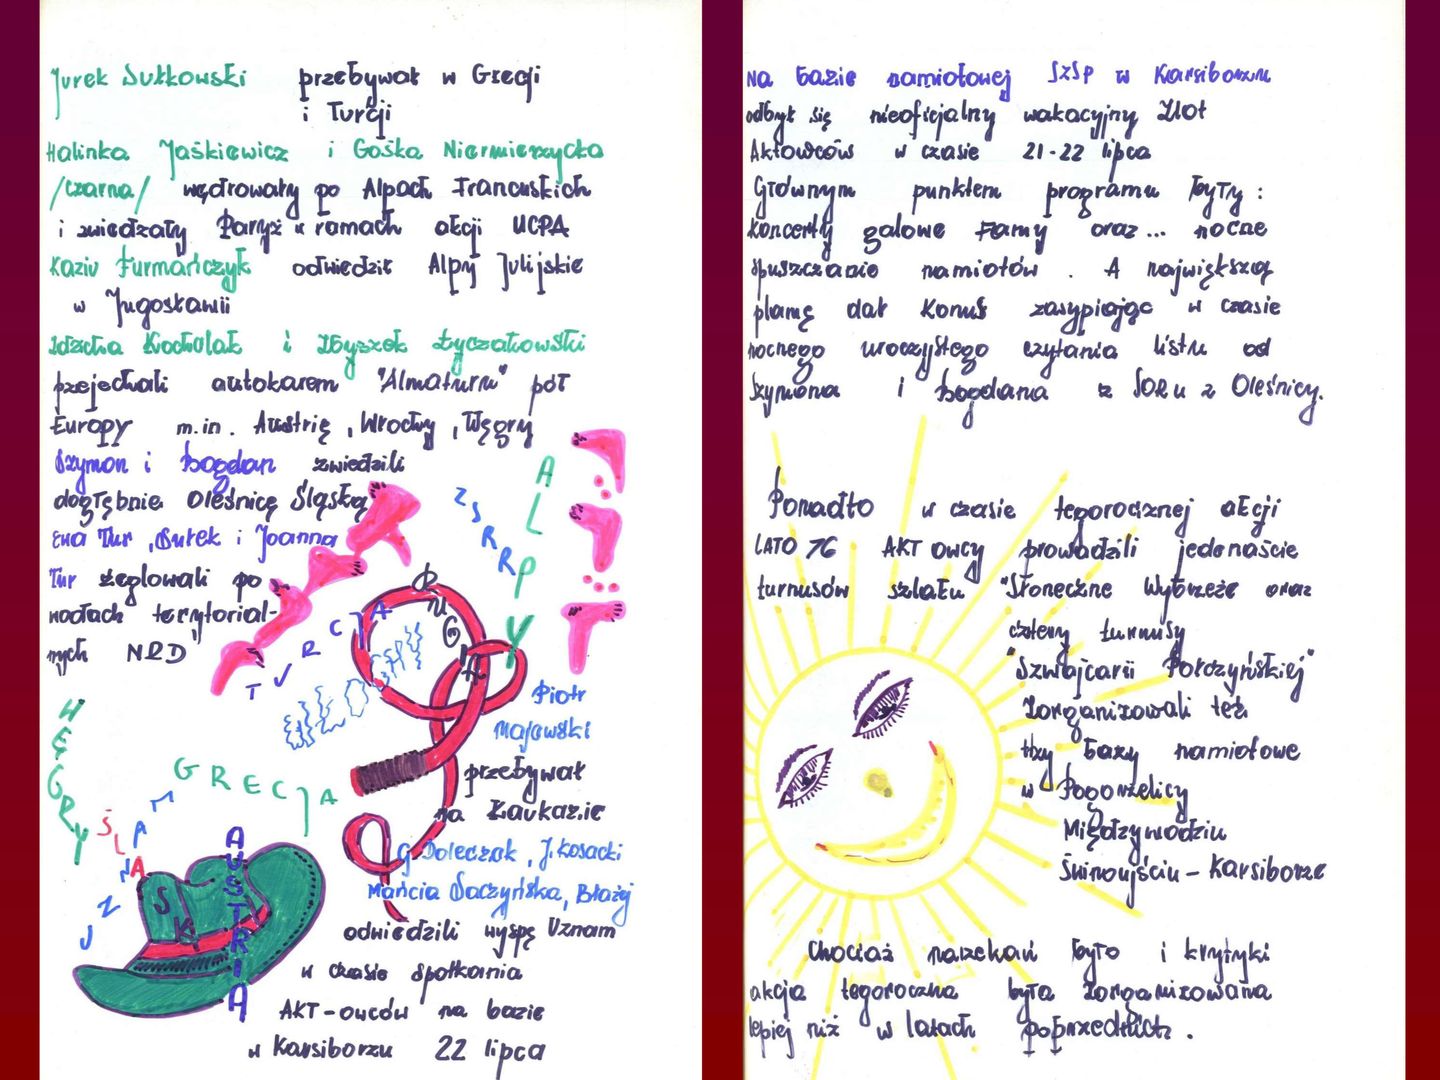 Jurek Sułkowski przebywał w Grecji
i Turcji
Halinka Jaśkiewicz i Gośka Niermierzycka
/czarna/ wędrowały po Alpach Francuskich
i zwiedzały Paryż w ramach akcji UCPA
Kaziu Furmańczyk odwiedził Alpy Julijskie
w Jugosławii
Zdzicha Kochalak i Zbyszek Łyczakowski
przejechali autokarem "Almaturu" pół
Europy m.in. Austrię, Włochy, Węgry
Szymon i Bogdan zwiedzili
dogłębnie Oleśnicę Śląską
Ewa Tur, Butek i Joanna
Tur żeglowali po
wodach terytorial-
nych NRD
ALPY
ZSRR
TURCJA
WĘGRY
GRECJA
UZNAM
ŚLĄSK
AUSTRIA
Piotr
Majewski
przebywał
na Kaukazie
G. Doleczak, J. Kosacki
Mańcia Daczyńska, Błażej
odwiedzili wyspę Uznam
w czasie spotkania
AKT-owców na bazie
w Karsiborzu 22 lipca
Na bazie namiotowej SZSP w Karsiborzu
odbył się nieoficjalny wakacyjny Zlot
Aktowców w czasie 21-22 lipca
Głównym punktem programu były:
koncerty galowe Famy oraz... nocne
spuszczanie namiotów. A największą
plamę dał Konus zasypiając w czasie
nocnego uroczystego czytania listu od
Szymona i Bogdana z SORu z Oleśnicy.
Ponadto w czasie tegorocznej akcji
LATO 76 AKTowcy prowadzili jedenaście
turnusów szlaku "Słoneczne Wybrzeże oraz
cztery turnusy
"Szwajcarii Połczyńskiej"
Zorganizowali też
trzy bazy namiotowe
w Pogorzelicy
Międzywodziu
Świnoujściu - Karsiborze
Chociaż narzekań było i krytyki
akcja tegoroczna była zorganizowana
lepiej niż w latach poprzednich.